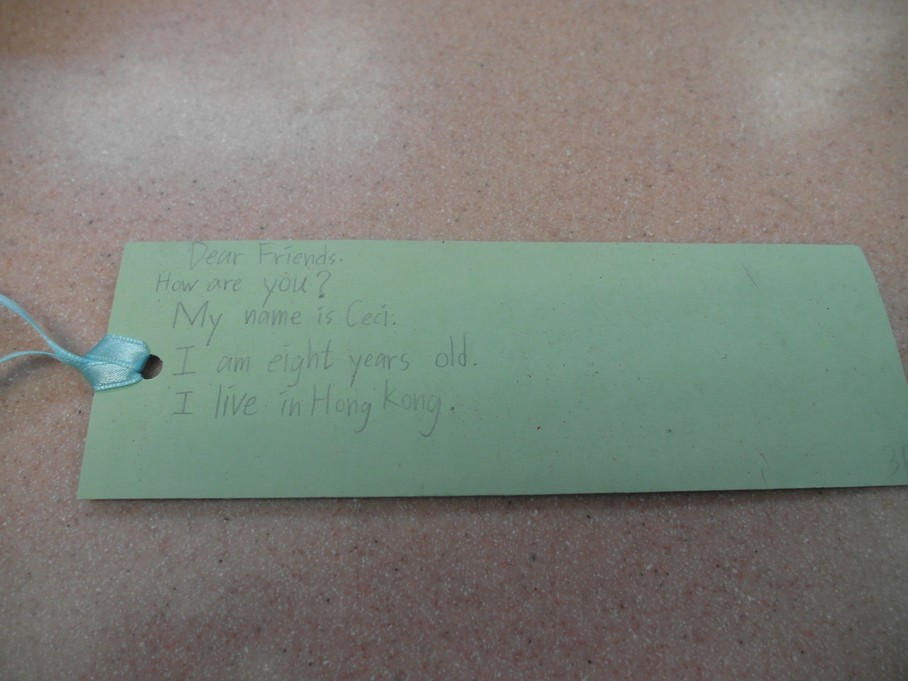 Dear Friends.
How are you?
My name is Ceci.
I am eight years old.
I live in Hong Kong.